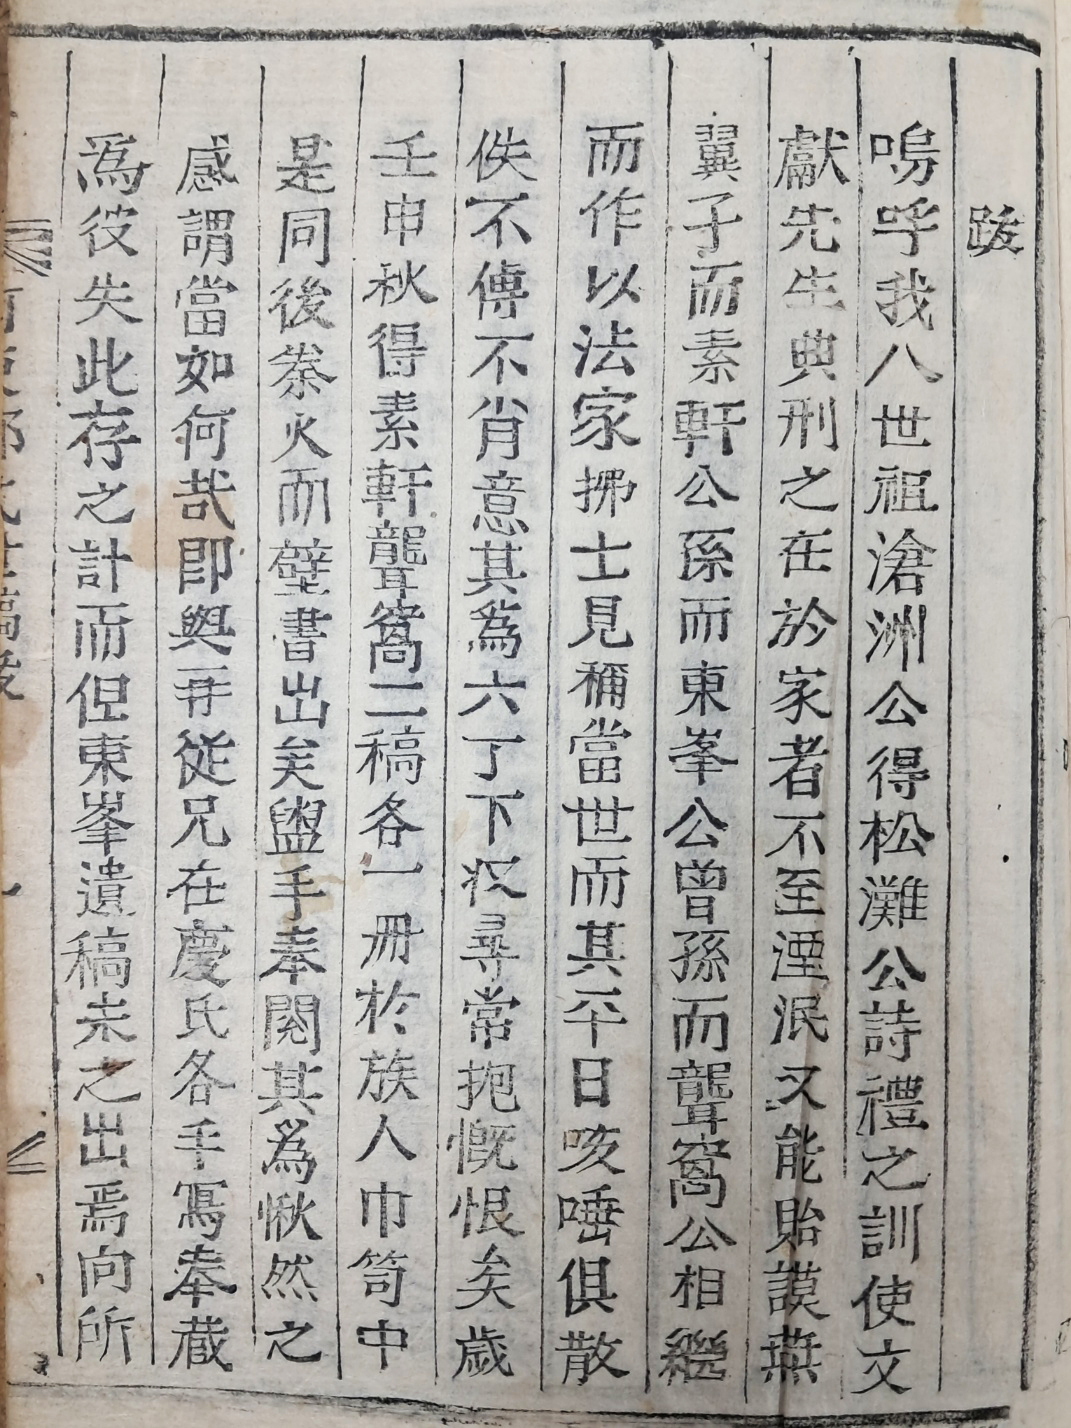 跋
嗚呼我八世祖滄洲公得松灘公詩禮之訓使文
獻先生典刑之在於家者不至湮泯又能貽謨燕
翼子而素軒公孫而東峯公曾孫而聾窩公相繼
而作以法家拂士見稱當世而其平日咳唾俱散
佚不傳不肖意其爲六丁下取尋常抱慨恨矣歲
壬申秋得素軒聾窩二稿各一冊於族人巾笥中
是同後秦火而壁書出矣盥手奉閱其爲愀然之
感謂當如何哉卽與再從兄在慶氏各手寫奉藏
爲役失此存之計而但東峯遺稿未之出焉向所